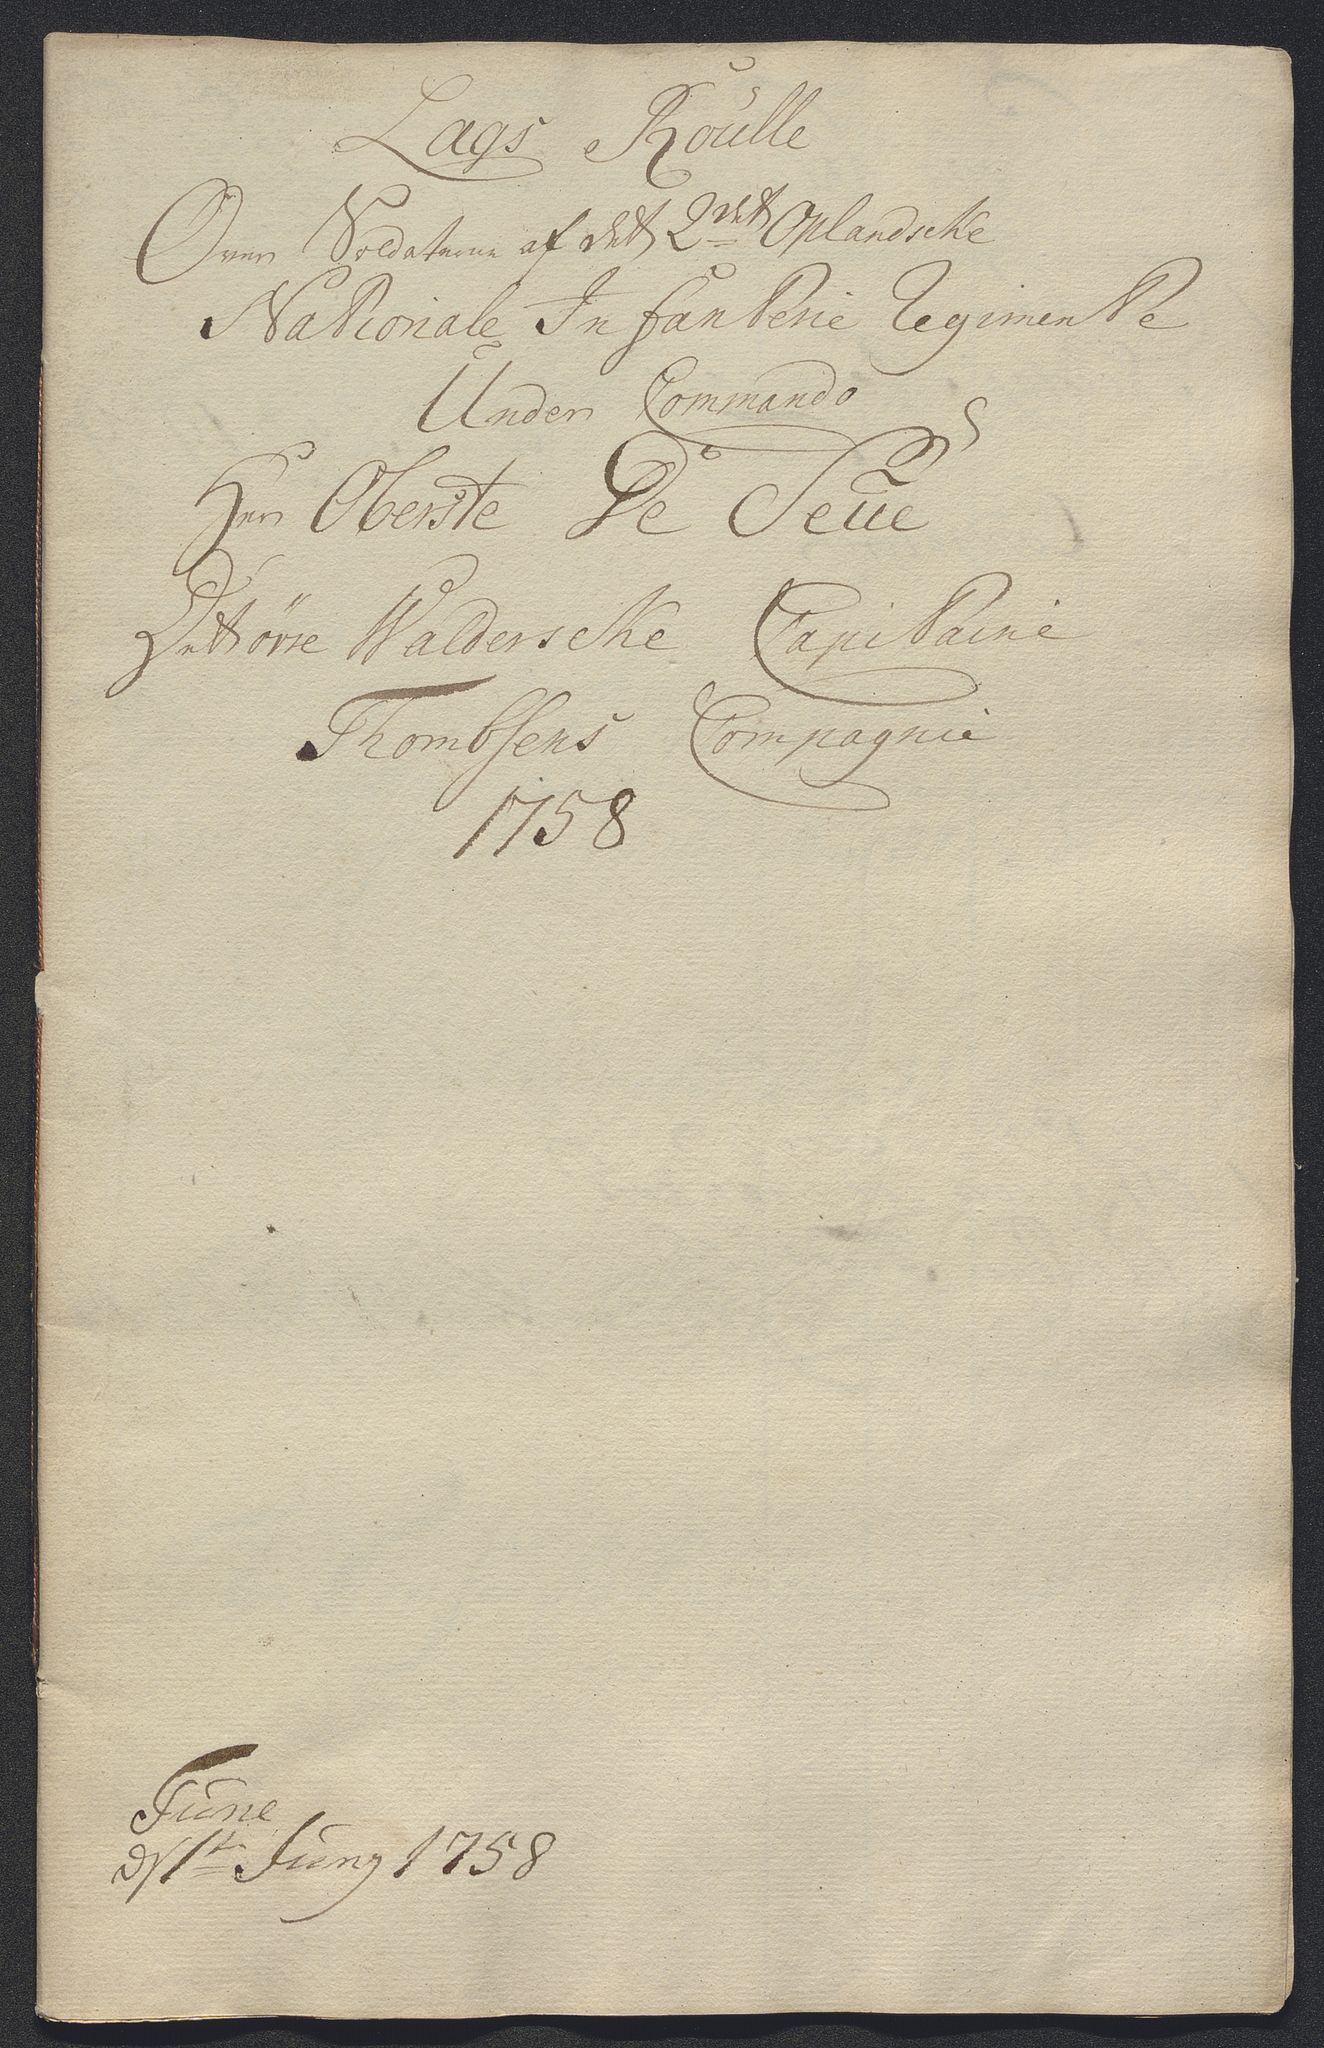 Lags Roulle
Over Soldaterne af det 2det Oplandscke
Nationale Infanterie Regimente
Under Commando
Herr Oberste De Seüe
Det törre Walderscke Capitaine
Thombsens Compagnie
1758
Tune
d 1te Juny 1758